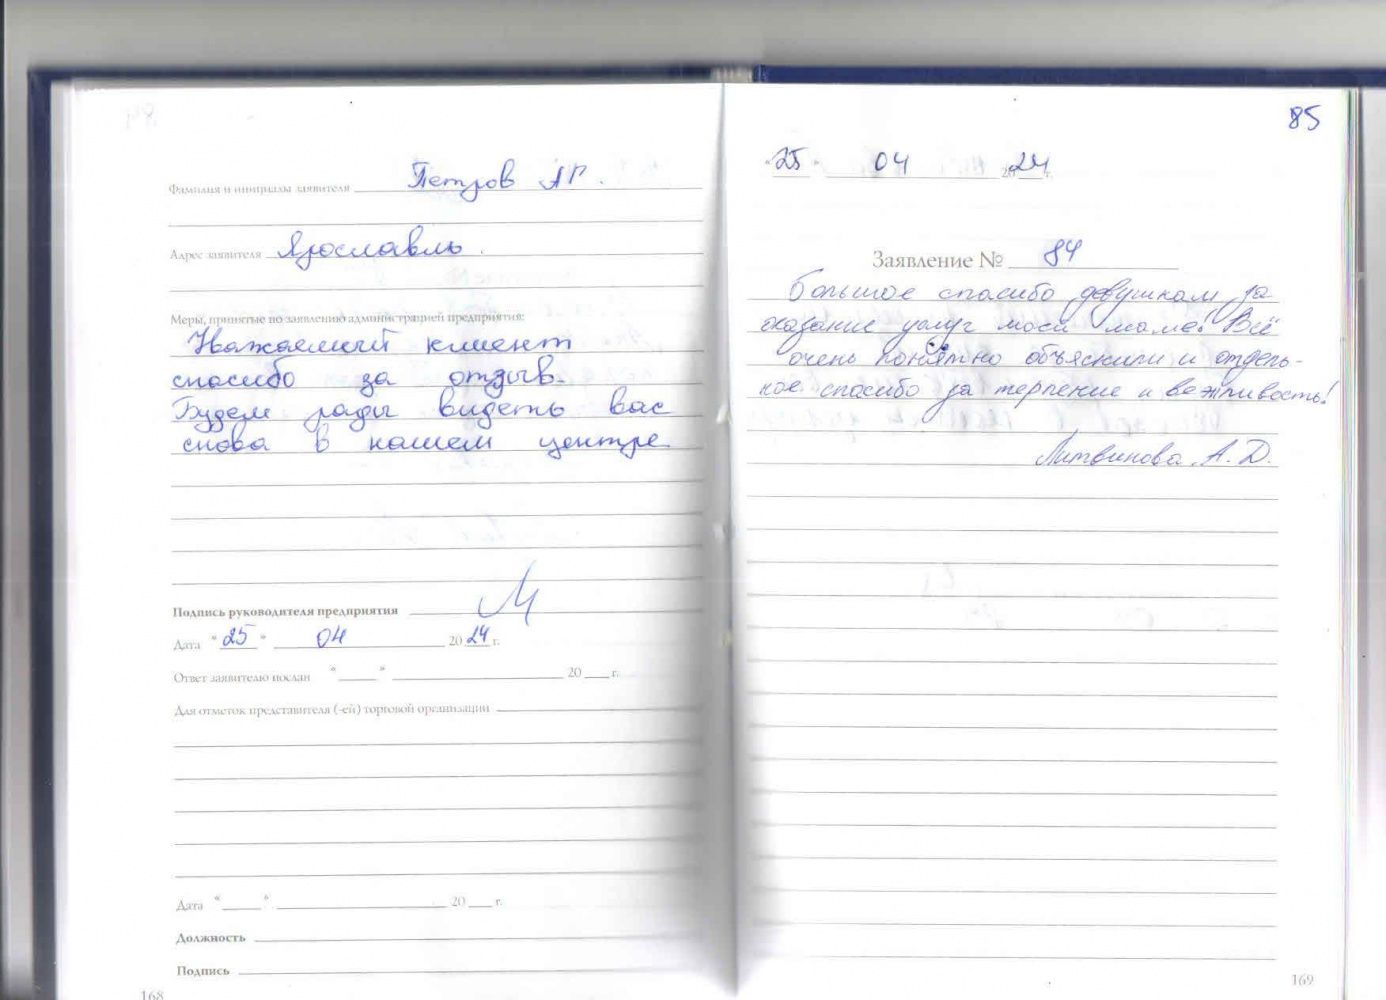 Фамилия и инициалы заявителя Петров АР.
Адрес заявителя Ярославль.
Меры, принятые по заявлению администрацией предприятия:
Уважаемый клиент
спасибо за отзыв.
Будем рады видеть вас
снова в нашем центре
Подпись руководителя предприятия
Дата "25" 04 2024 г.
Ответ заявителю послан " " 20 г.
Для отметок представителя (-ей) торговой организации
Дата " " 20 г.
Должность
Подпись
168
85
"25" 04 2024 г.
Заявление № 84
Большое спасибо девушкам за
оказание услуг моей маме! Всё
очень понятно объяснили и отдель-
ное спасибо за терпение и вежливость!
Литвинова А.Д.
169